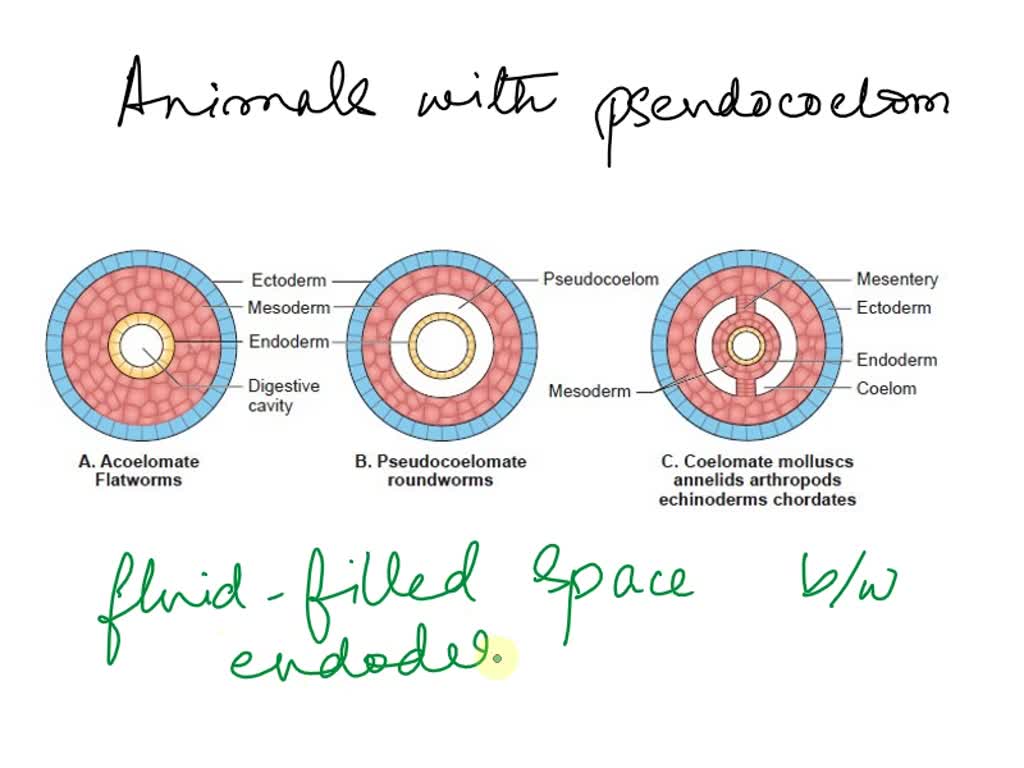 Animals with pseudocoelom
Ectoderm
Mesoderm
Endoderm
Digestive
cavity
A. Acoelomate
Flatworms
Pseudocoelom
Mesoderm
B. Pseudocoelomate
roundworms
Mesentery
Ectoderm
Endoderm
Coelom
C. Coelomate molluscs
annelids arthropods
echinoderms chordates
fluid-filled space b/w
endoder